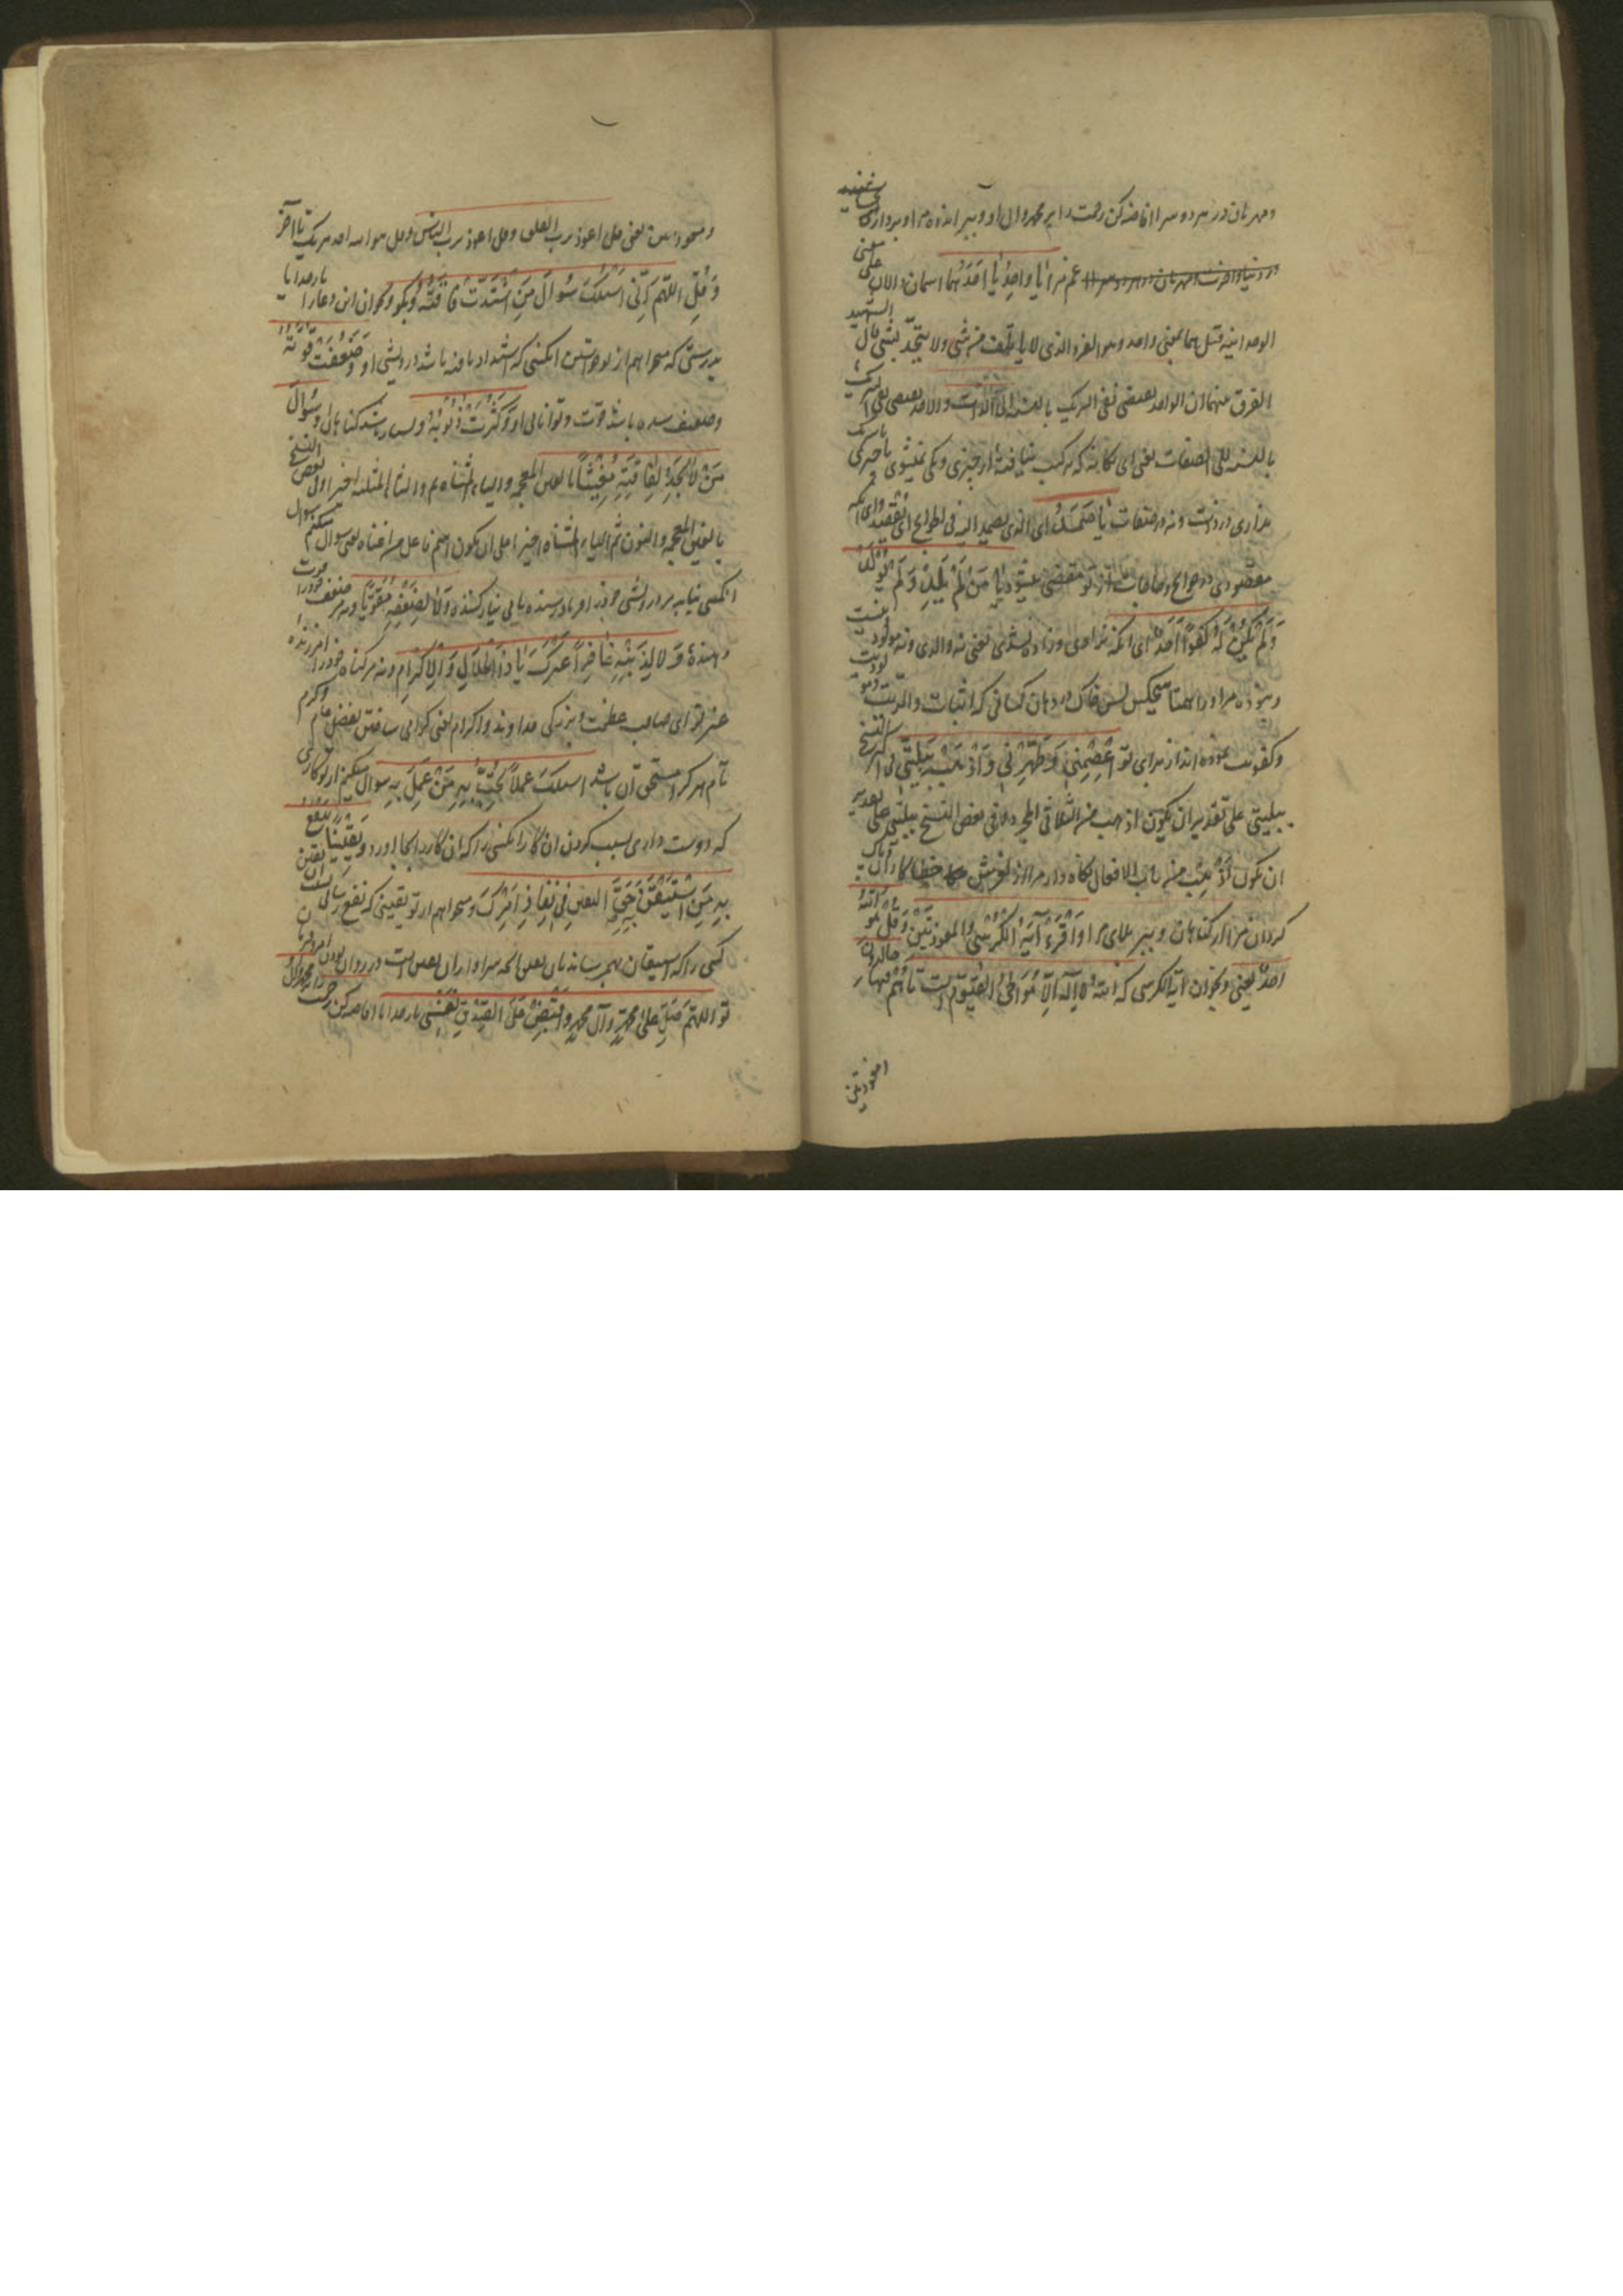 ومهربان در هر دو سرا افاضه کن رحمت را بر محمد وال او و ببر اندوه مرا و بردار
غم مرا یا واحِدُ یا اَحَدُ هما اسمان دالان علی معنی
الوحدانیة قیل هما بمعنی واحد وهو الفرد الذی لا یاتلف من شی ولا یتحد بشی قال الشهید
الفرق بینهما ان الواحد یقتضی نفی الشریک بالنسبة الی الذات والاحد یقتضی نفی الشریک
بالنسبة الی الصفات یعنی ای یکانه که ترکیب نیافتهٔ از چیزی ویکی نمیشوی با چیزی
نداری در ذات ونه در صفات یا صَمَدُ ای الذی یصمد الیه فی الحوائج ای یقصد وای آنکه
مقصودی در حوائج وحاجات از تو مقضی میشود یا مَنْ لَمْ یَلِدْ وَلَمْ یُولَدْ
وَلَمْ یَکُنْ لَهُ کُفُوًا اَحَدٌ ای آنکه نزادی وزاده نشدی یعنی نه والدی ونه مولود
ونبوده مر او را همتا هیچکس پس خاک در دهان کسانی که اثبات والدیت
وکفویت نموده اند از برای تو اِعْصِمْنِی وَطَهِّرْنِی وَاذْهَبْ بِبَلِیَّتِی
ببلیتی علی تقدیر ان یکون اذهب من الثلاثی المجرد وفی بعض النسخ بلیتی علی تقدیر
ان یکون اَذْهِبْ من باب الافعال نگاه دار مرا از لغزش خطا کار وپاک
کردان مرا از کناهان وببر بلای مرا وَاقْرَءْ آیَةَ الْکُرْسِیِّ والمعوذتین وَقُلْ هُوَ اللّهُ
اَحَدٌ یعنی وبخوان آیة الکرسی که اَللّهُ لا اِلهَ اِلّا هُوَ الحَیُّ القَیُّومُ است تا هُمْ فیها خالدون
ومعوذتین
ومعوذتین یعنی قل اعوذ برب الفلق وقل اعوذ برب الناس وقل هو الله احد هر یک تا آخر
وَقُلْ اَللّهُمَّ اِنّی اَسْئَلُکَ سُؤالَ مَنِ اشْتَدَّتْ فاقَتُهُ وبکو وبخوان این دعا را بار خدایا
بدرستی که میخواهم از تو خواستن آنکسی که اشتداد یافته باشد درویشی او وَضَعُفَتْ قُوَّتُهُ
وضعیف شده باشد قوت وتوانائی او وَکَثُرَتْ ذُنُوبُهُ وبسیار باشد کناهان او سُؤالَ
مَنْ لا یَجِدُ لِفاقَتِهِ مُغِیثًا بالغین المعجمه والیاء المثناة ثم والثاء المثلثه اخیرا وفی بعض النسخ
بالغین المعجمه والنون ثم الیاء المثناة اخیرا علی ان یکون اسم فاعل من اغناه یعنی سوال میکنم سوال
آنکسی نیابد بر درویشی خود فریاد رسنده یا بی نیاز کننده وَلا لِضَعْفِهِ مُقَوِّیًا ونه بر ضعف خود قوت
دهنده وَلا لِذَنْبِهِ غافِرًا غَیْرَکَ یا ذَا الجَلالِ وَالاِکْرامِ ونه بر کناه خود آمرزنده
غیر تو ای صاحب عظمت وبزرکی خداوند واکرام یعنی کرامی ساختن بفضل عام وکرم
تام هر کرا مستحق آن باشد اسئلک عملًا تُحِبُّ بِهِ مَنْ عَمِلَ بِهِ سوال میکنم از تو کاری
که دوست داری بسبب کردن آن کار آنکسی را که آن کار را بجا آورد ویَقِینًا یَنْفَعُ
بِهِ مَنِ اسْتَیْقَنَ بِهِ حَقَّ الیقین فِی نَفاذِ اَمْرِکَ ومیخواهم از تو یقینی که نفع رسانی
کسی را که استیقان بهم رساند بآن یقین آنچه سزاوار آن یقین است در روان بودن امر تو
تو اللهم صَلِّ عَلی مُحَمَّدٍ وآلِ مُحَمَّدٍ وَاقْبِضْ عَلَی الصِّدْقِ نَفْسِی بار خدایا افاضه کن رحمت را بر محمد وال او